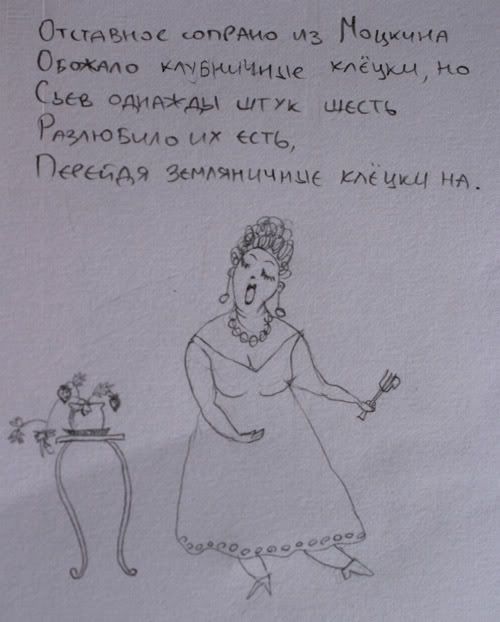 Отставное сопрано из Моцкина
Обожало клубничные клёцки, но
Съев однажды штук шесть
Разлюбило их есть,
Перейдя земляничные клёцки на.